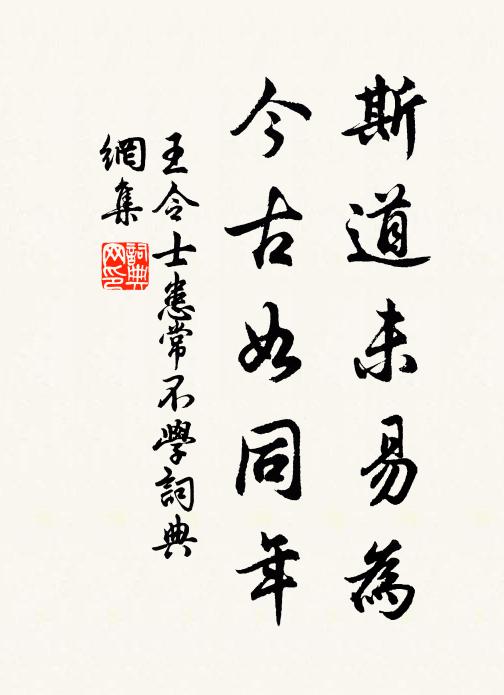 斯道未易為
今古如同年
王令士患常不學詞典
網集
詞典
网印